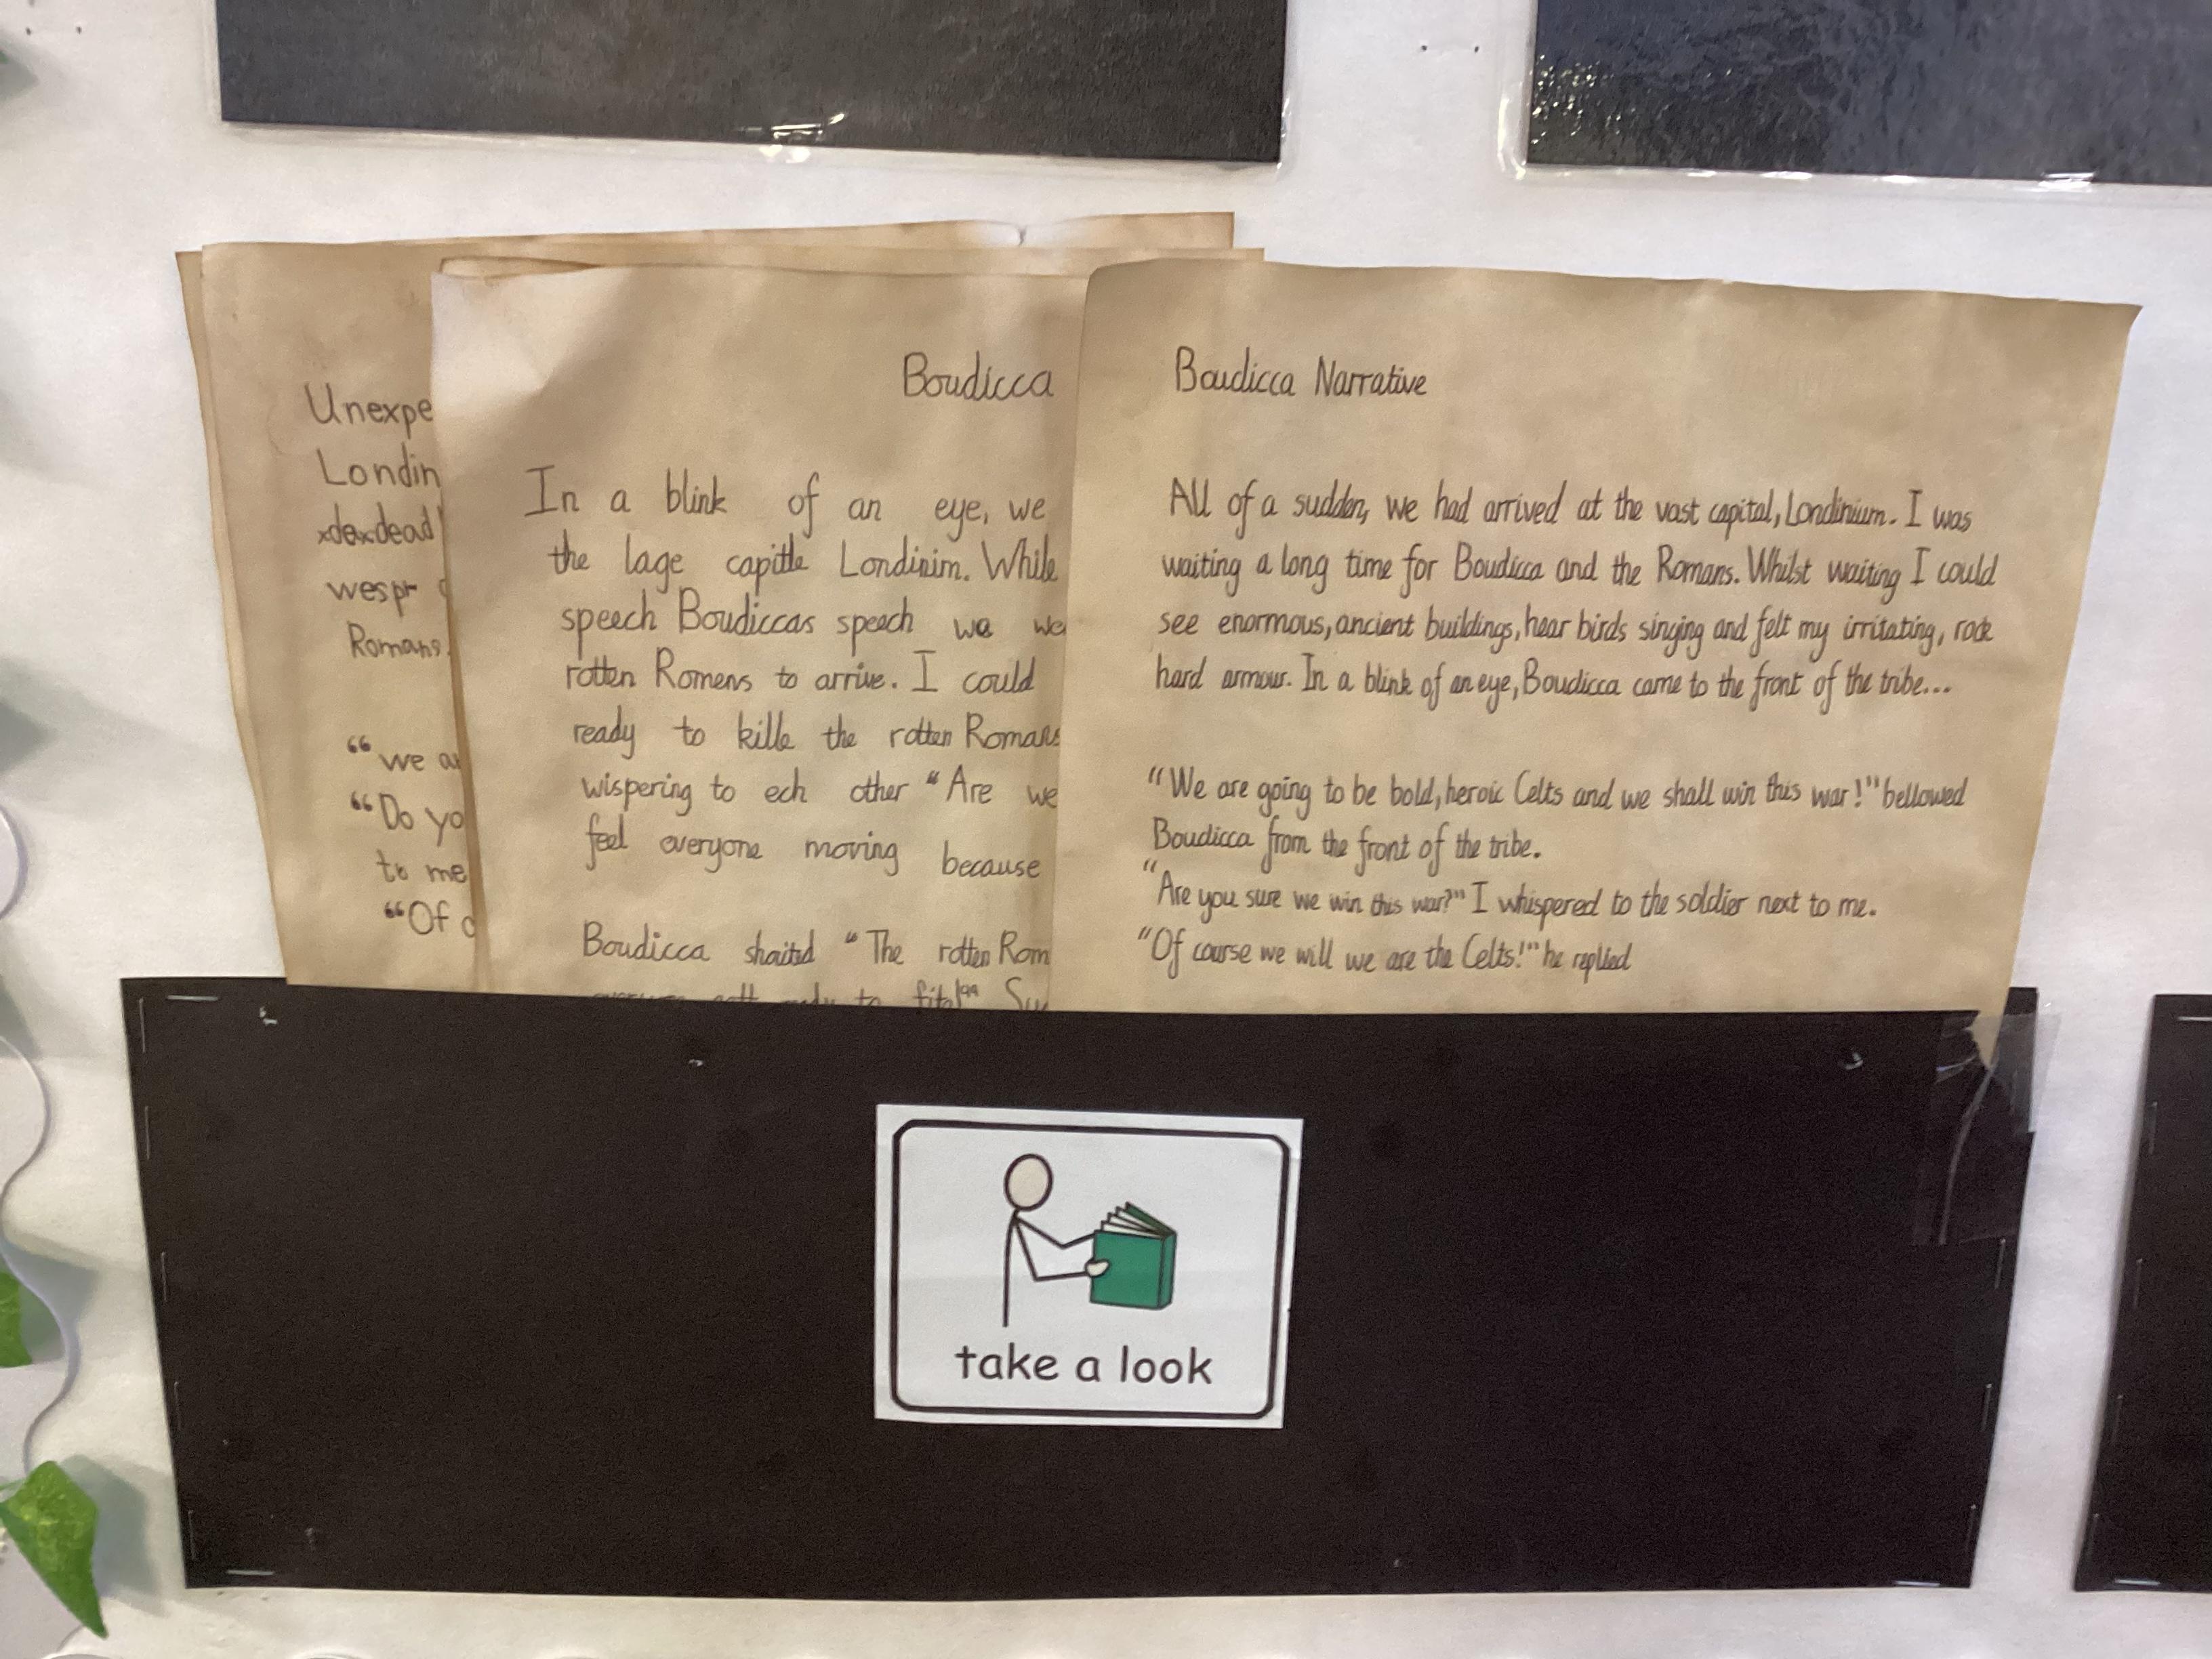 Unexpe
Londin
dead
wespr
Romans.
"we a
"Do yo
to me
"Of c
Boudicca
In a blink of an eye, we
the lage capitle Londinim. While
speech Boudiccas speech we we
rotten Romens to arrive. I could
ready to kille the rotten Romans
wispering to ech other "Are we
feel everyone moving because
Boudicca shaited "The rotten Rom
to fite!" Su
Boudicca Narrative
All of a sudden, we had arrived at the vast capital, Londinium. I was
waiting a long time for Boudicca and the Romans. Whilst waiting I could
see enormous, ancient buildings, hear birds singing and felt my irritating, rock
hard armour. In a blink of an eye, Boudicca came to the front of the tribe...
"We are going to be bold, heroic Celts and we shall win this war!" bellowed
Boudicca from the front of the tribe.
"Are you sure we win this war?" I whispered to the soldier next to me.
"Of course we will we are the Celts!" he replied
take a look